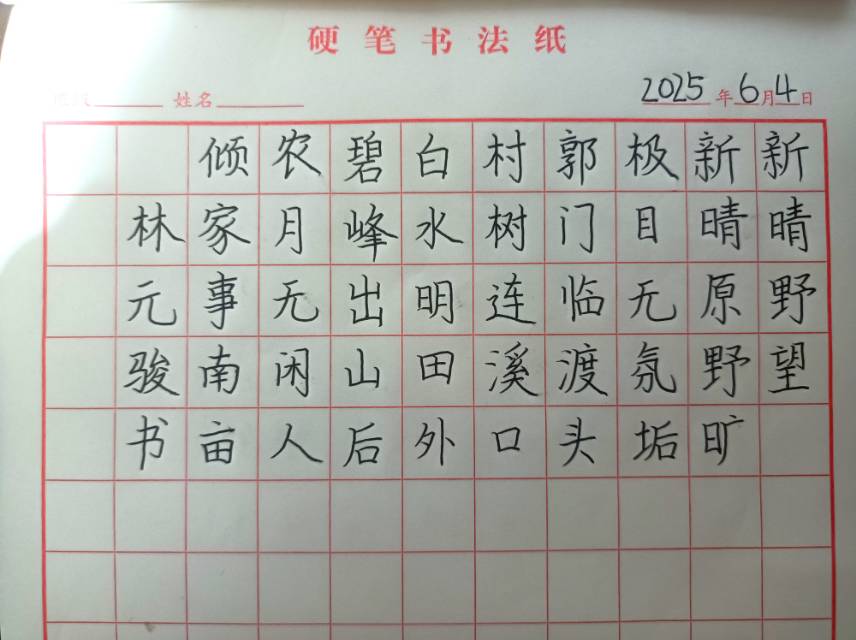 硬笔书法纸
班级 姓名 2025年6月4日
新晴野望
新晴原野旷
极目无氛垢
郭门临渡头
村树连溪口
白水明田外
碧峰出山后
农月无闲人
倾家事南亩
林元骏书